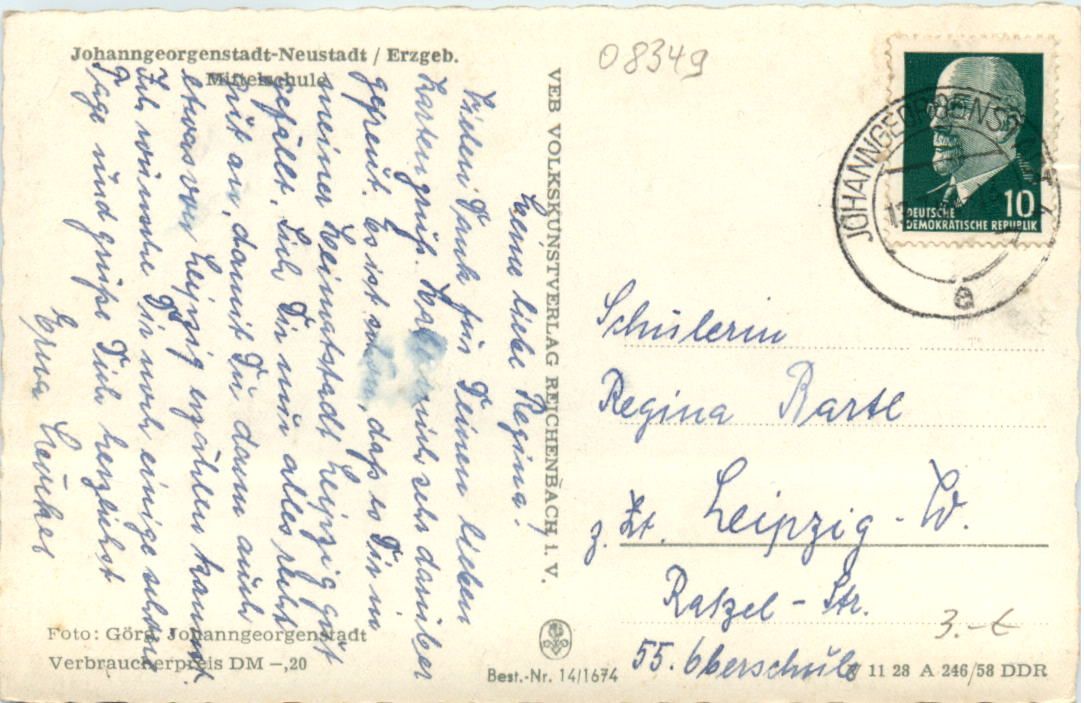 Johanngeorgenstadt-Neustadt / Erzgeb.
Mittelschule
Meine liebe Regina!
Vielen Dank für Deinen lieben
Kartengruß. Habe mich sehr darüber
gefreut. Es ist schön, daß es Dir in
meiner Heimatstadt Leipzig gut
gefällt. Sieh Dir nur alles recht
gut an, damit Du dann auch
etwas von Leipzig erzählen kannst.
Ich wünsche Dir noch einige schöne
Tage und grüße Dich herzlichst
Foto: Görg, Johanngeorgenstadt
Verbraucherpreis DM –,20
VEB VOLKSKUNSTVERLAG REICHENBACH i. V.
Best.-Nr. 14/1674
08349
JOHANNGEORGENSTADT
a
10
DEUTSCHE
DEMOKRATISCHE REPUBLIK
Schülerin
Regina Bartl
z. Zt. Leipzig - W.
Ratzel - Str.
55. Oberschule
3.-€
11 28 A 246/58 DDR